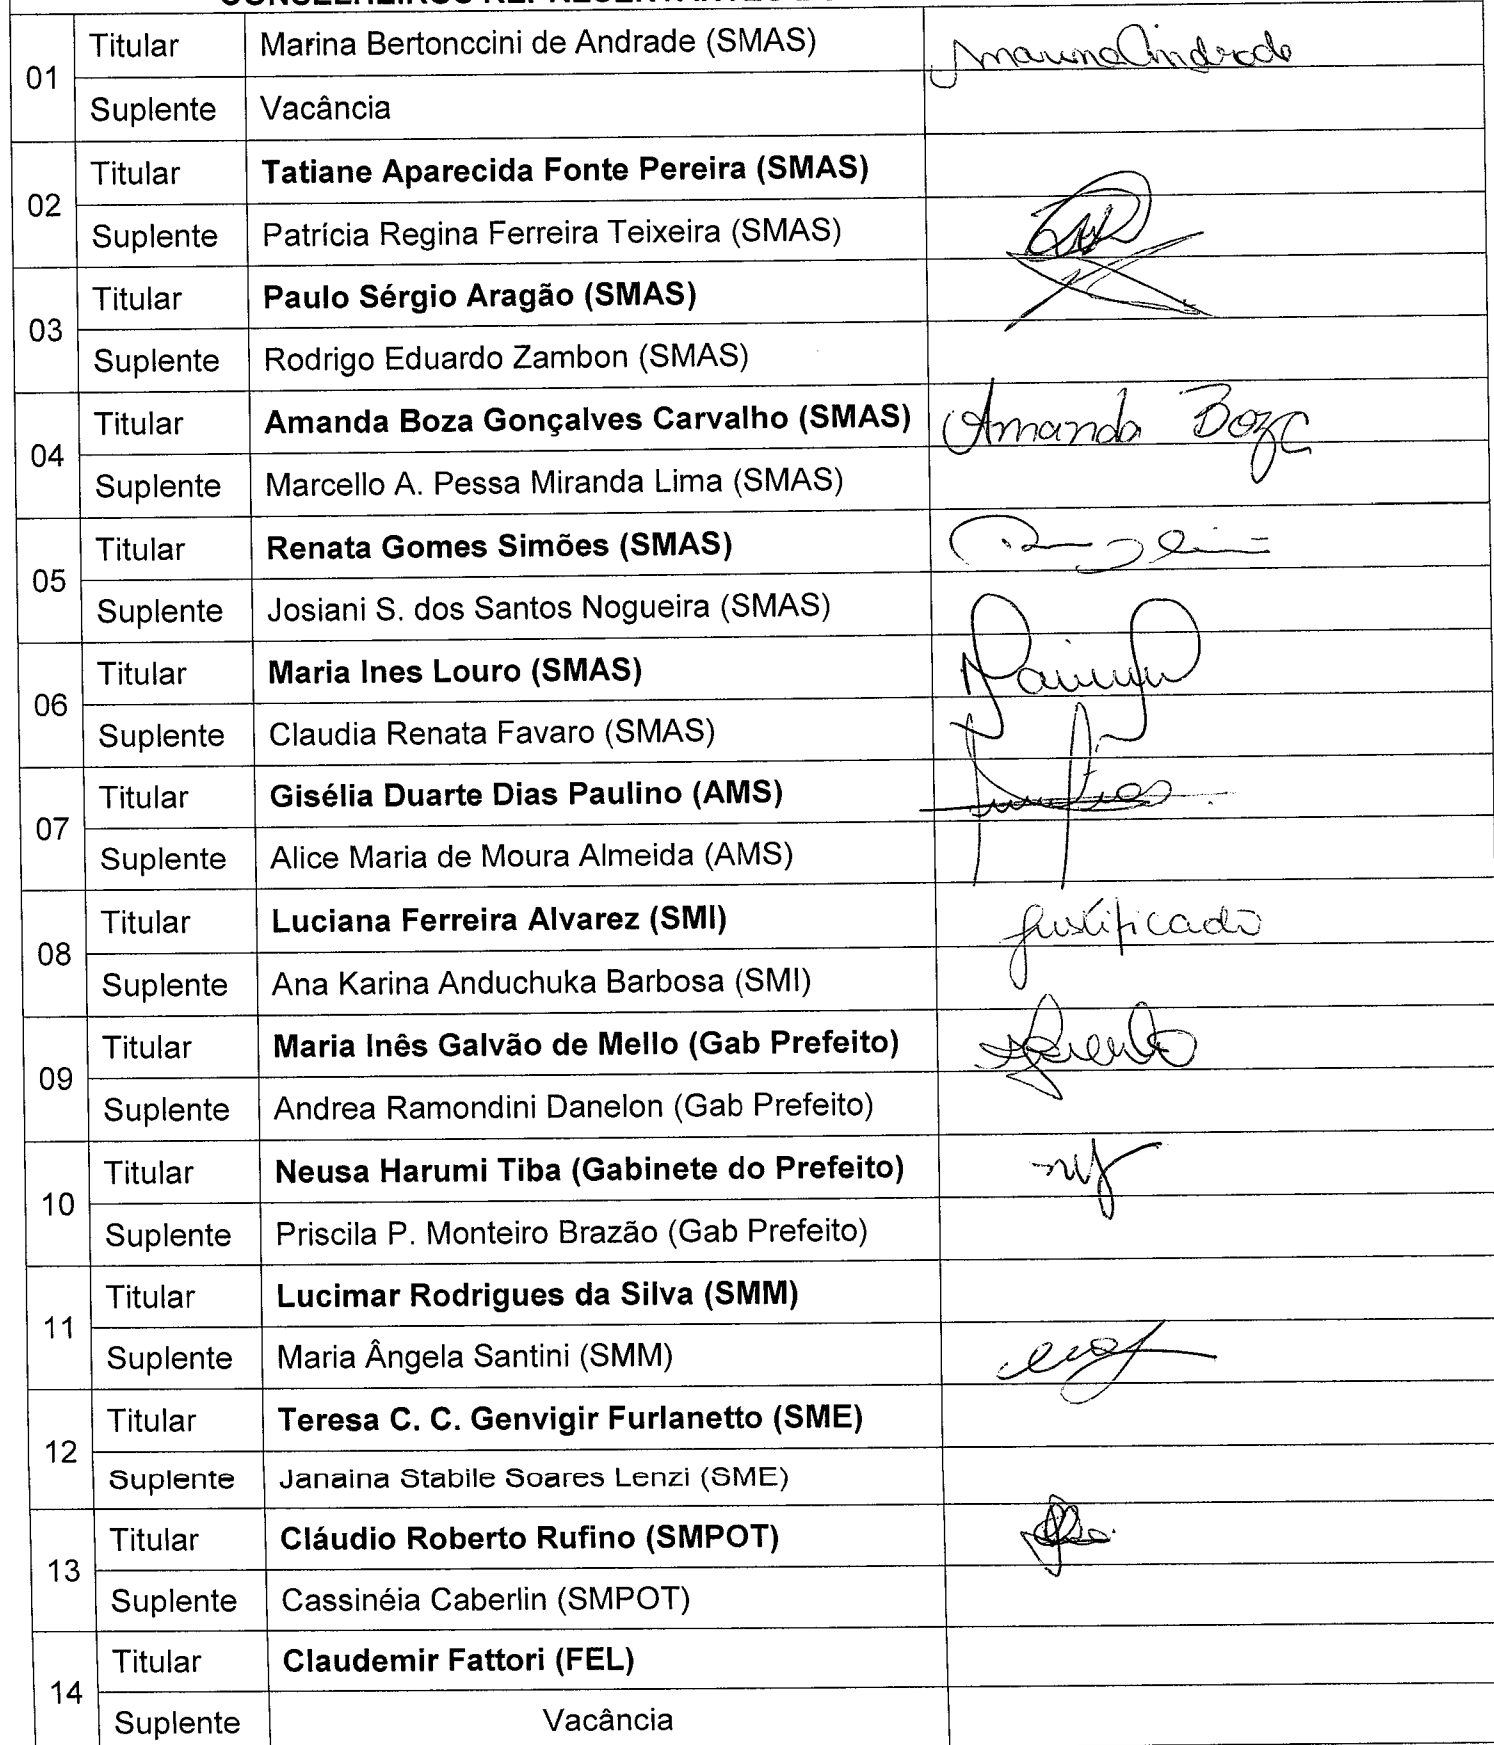 01 Titular Marina Bertonccini de Andrade (SMAS) Marina Andrade
Suplente Vacância
02 Titular Tatiane Aparecida Fonte Pereira (SMAS)
Suplente Patrícia Regina Ferreira Teixeira (SMAS)
03 Titular Paulo Sérgio Aragão (SMAS)
Suplente Rodrigo Eduardo Zambon (SMAS)
04 Titular Amanda Boza Gonçalves Carvalho (SMAS) Amanda Boza
Suplente Marcello A. Pessa Miranda Lima (SMAS)
05 Titular Renata Gomes Simões (SMAS)
Suplente Josiani S. dos Santos Nogueira (SMAS)
06 Titular Maria Ines Louro (SMAS)
Suplente Claudia Renata Favaro (SMAS)
07 Titular Gisélia Duarte Dias Paulino (AMS)
Suplente Alice Maria de Moura Almeida (AMS)
08 Titular Luciana Ferreira Alvarez (SMI) justificado
Suplente Ana Karina Anduchuka Barbosa (SMI)
09 Titular Maria Inês Galvão de Mello (Gab Prefeito)
Suplente Andrea Ramondini Danelon (Gab Prefeito)
10 Titular Neusa Harumi Tiba (Gabinete do Prefeito)
Suplente Priscila P. Monteiro Brazão (Gab Prefeito)
11 Titular Lucimar Rodrigues da Silva (SMM)
Suplente Maria Ângela Santini (SMM)
12 Titular Teresa C. C. Genvigir Furlanetto (SME)
Suplente Janaina Stabile Soares Lenzi (SME)
13 Titular Cláudio Roberto Rufino (SMPOT)
Suplente Cassinéia Caberlin (SMPOT)
14 Titular Claudemir Fattori (FEL)
Suplente Vacância